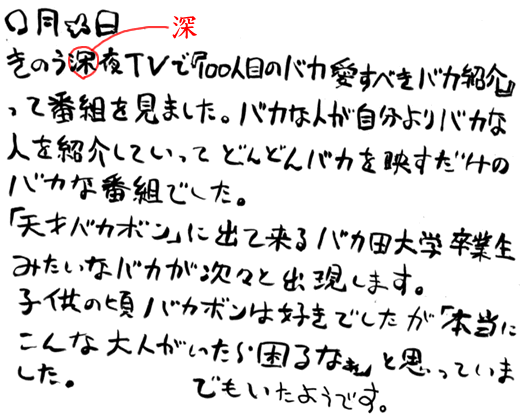 ○月☆日
深
きのう深夜TVで『100人目のバカ愛すべきバカ紹介』
って番組を見ました。バカな人が自分よりバカな
人を紹介していって どんどんバカを映すだけの
バカな番組でした。
「天才バカボン」に出て来るバカ田大学卒業生
みたいなバカが次々と出現します。
子供の頃バカボンは好きでしたが「本当に
こんな大人がいたら困るなぁ」と思っていま
した。 でもいたようです。